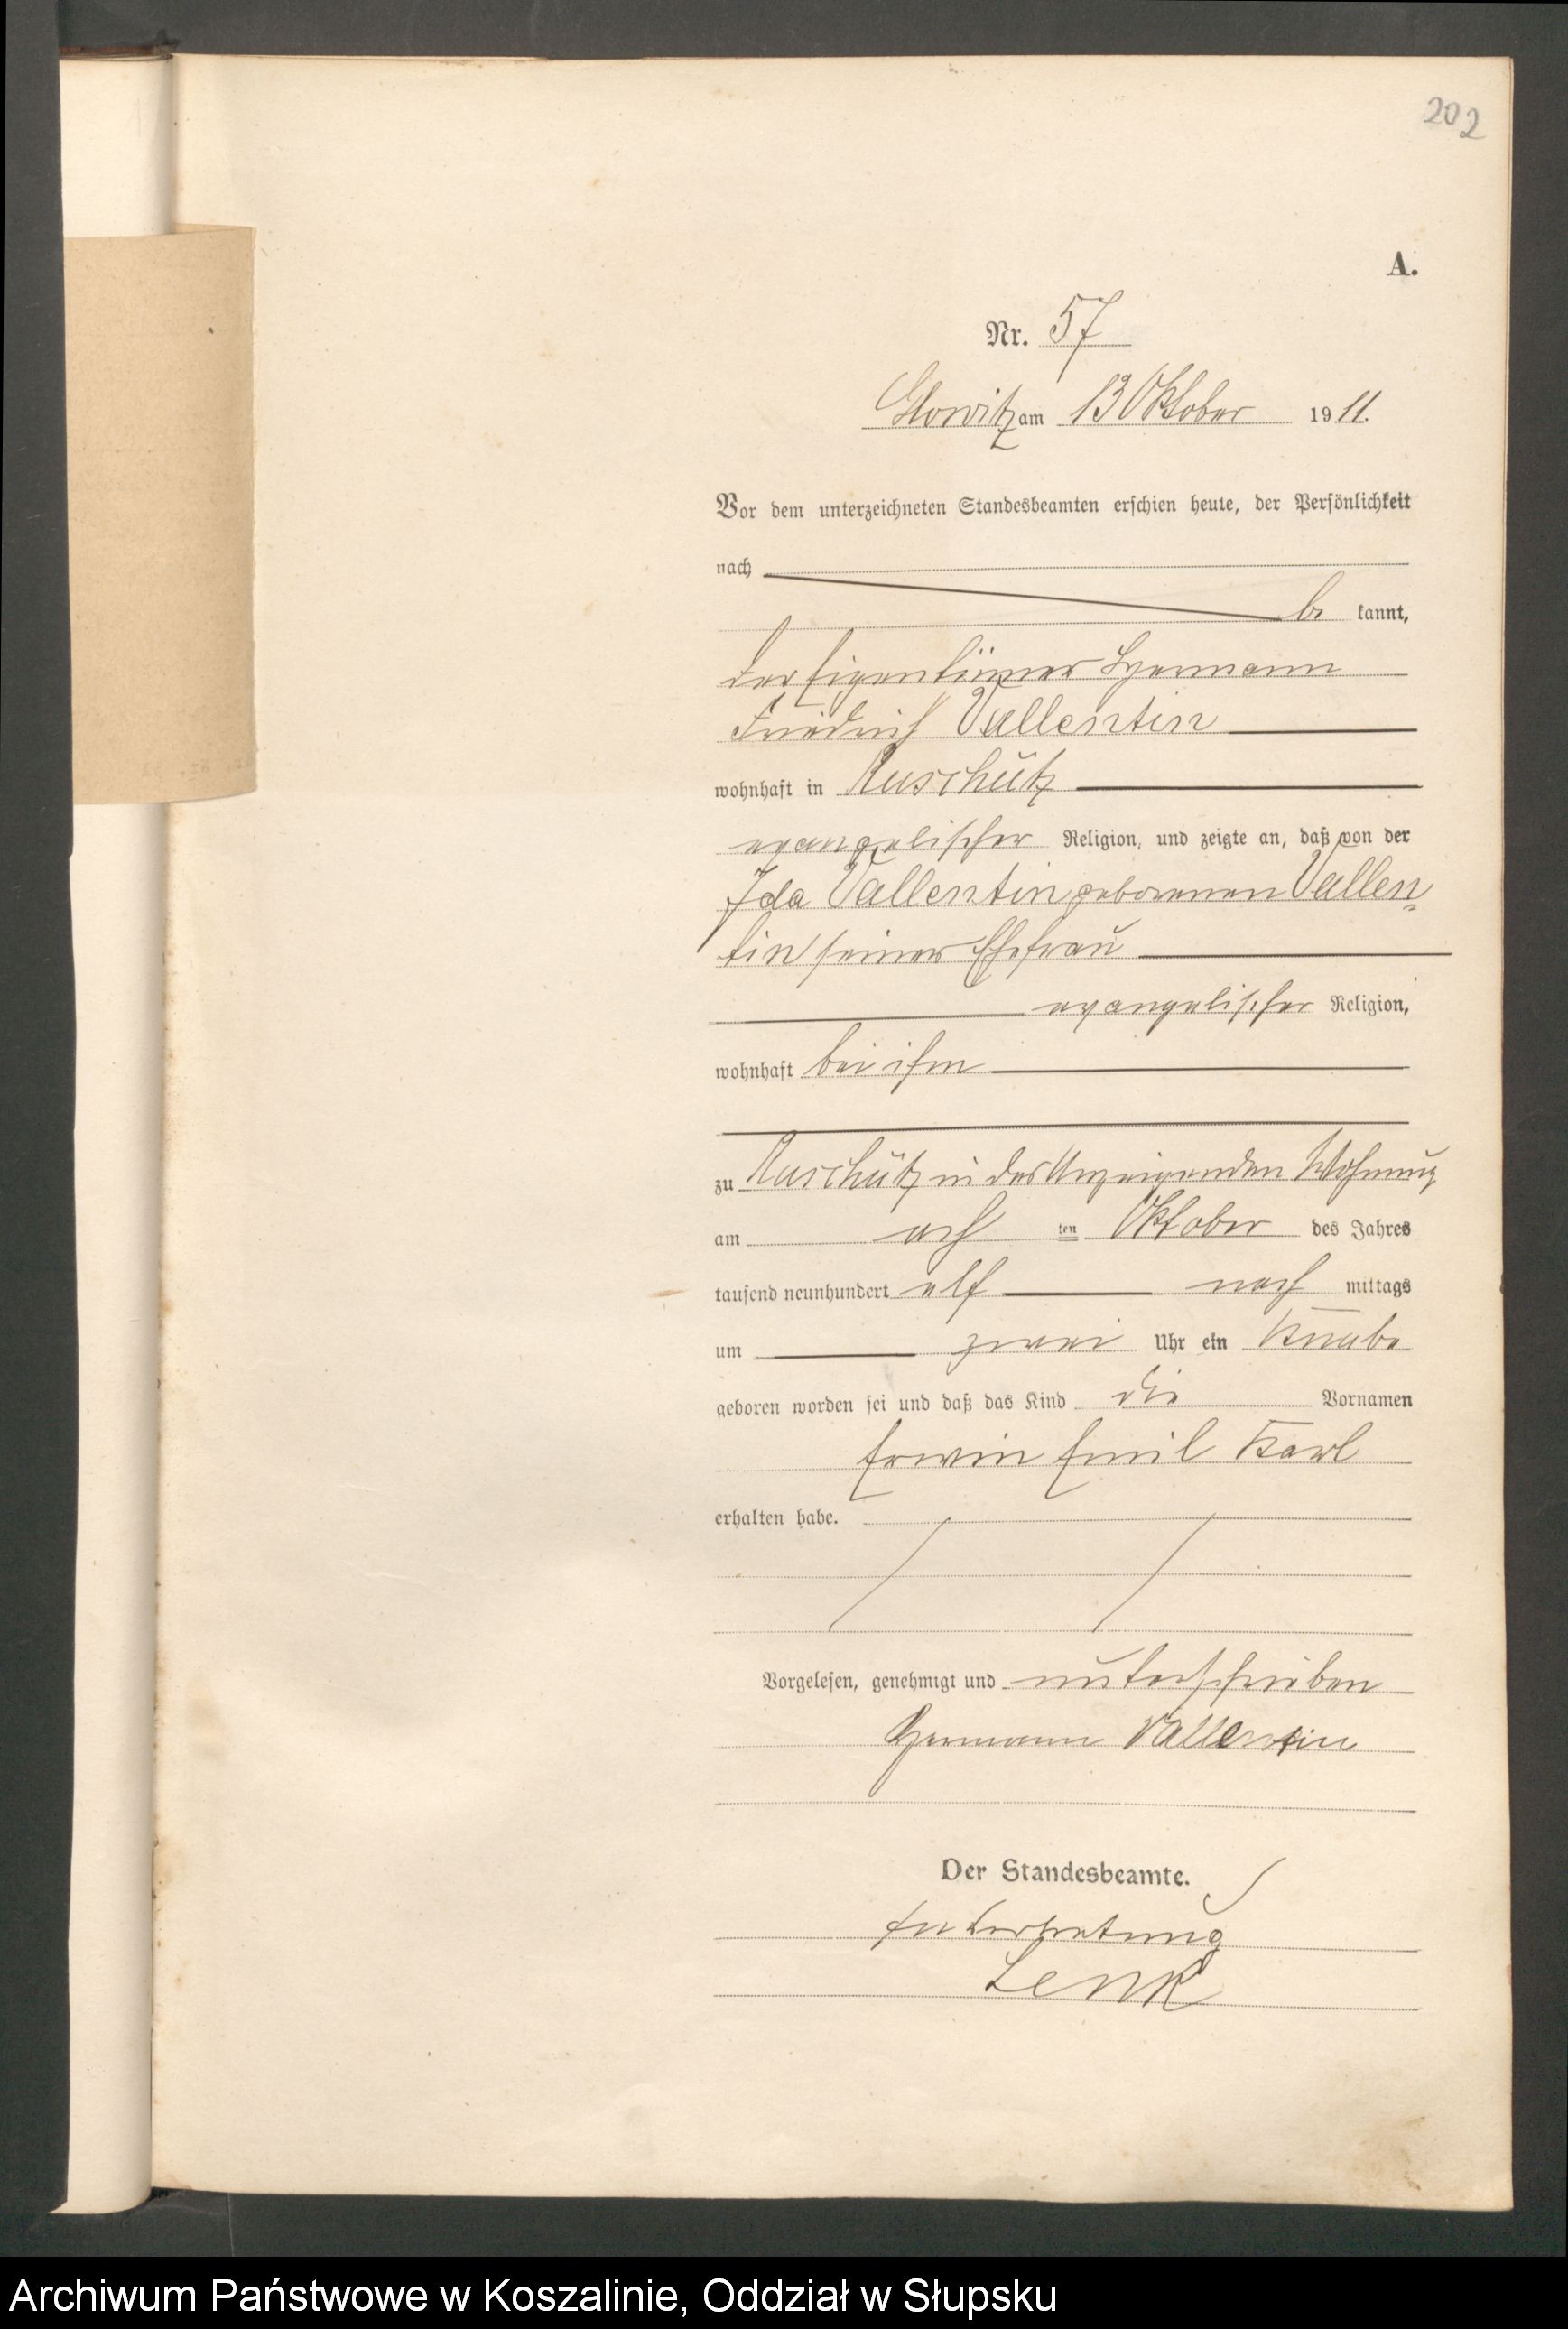 202
A.
Nr. 57
Glowitz am 13 Oktober 1911.
Vor dem unterzeichneten Standesbeamten erschien heute, der Persönlichkeit
nach
be kannt,
der Eigentümer Hermann
Friedrich Vallentin
wohnhaft in Ruschütz
evangelischer Religion, und zeigte an, daß von der
Ida Vallentin geborenen Vallen
tin seiner Ehefrau
evangelischer Religion,
wohnhaft bei ihm
zu Ruschütz in des Anzeigenden Wohnung
am ach ten Oktober des Jahres
tausend neunhundert elf nach mittags
um zwei Uhr ein Knabe
geboren worden sei und daß das Kind die Vornamen
Erwin Emil Karl
erhalten habe.
Vorgelesen, genehmigt und unterschrieben
Hermann Vallentin
Der Standesbeamte.
In Vertretung
Lenk
Archiwum Państwowe w Koszalinie, Oddział w Słupsku